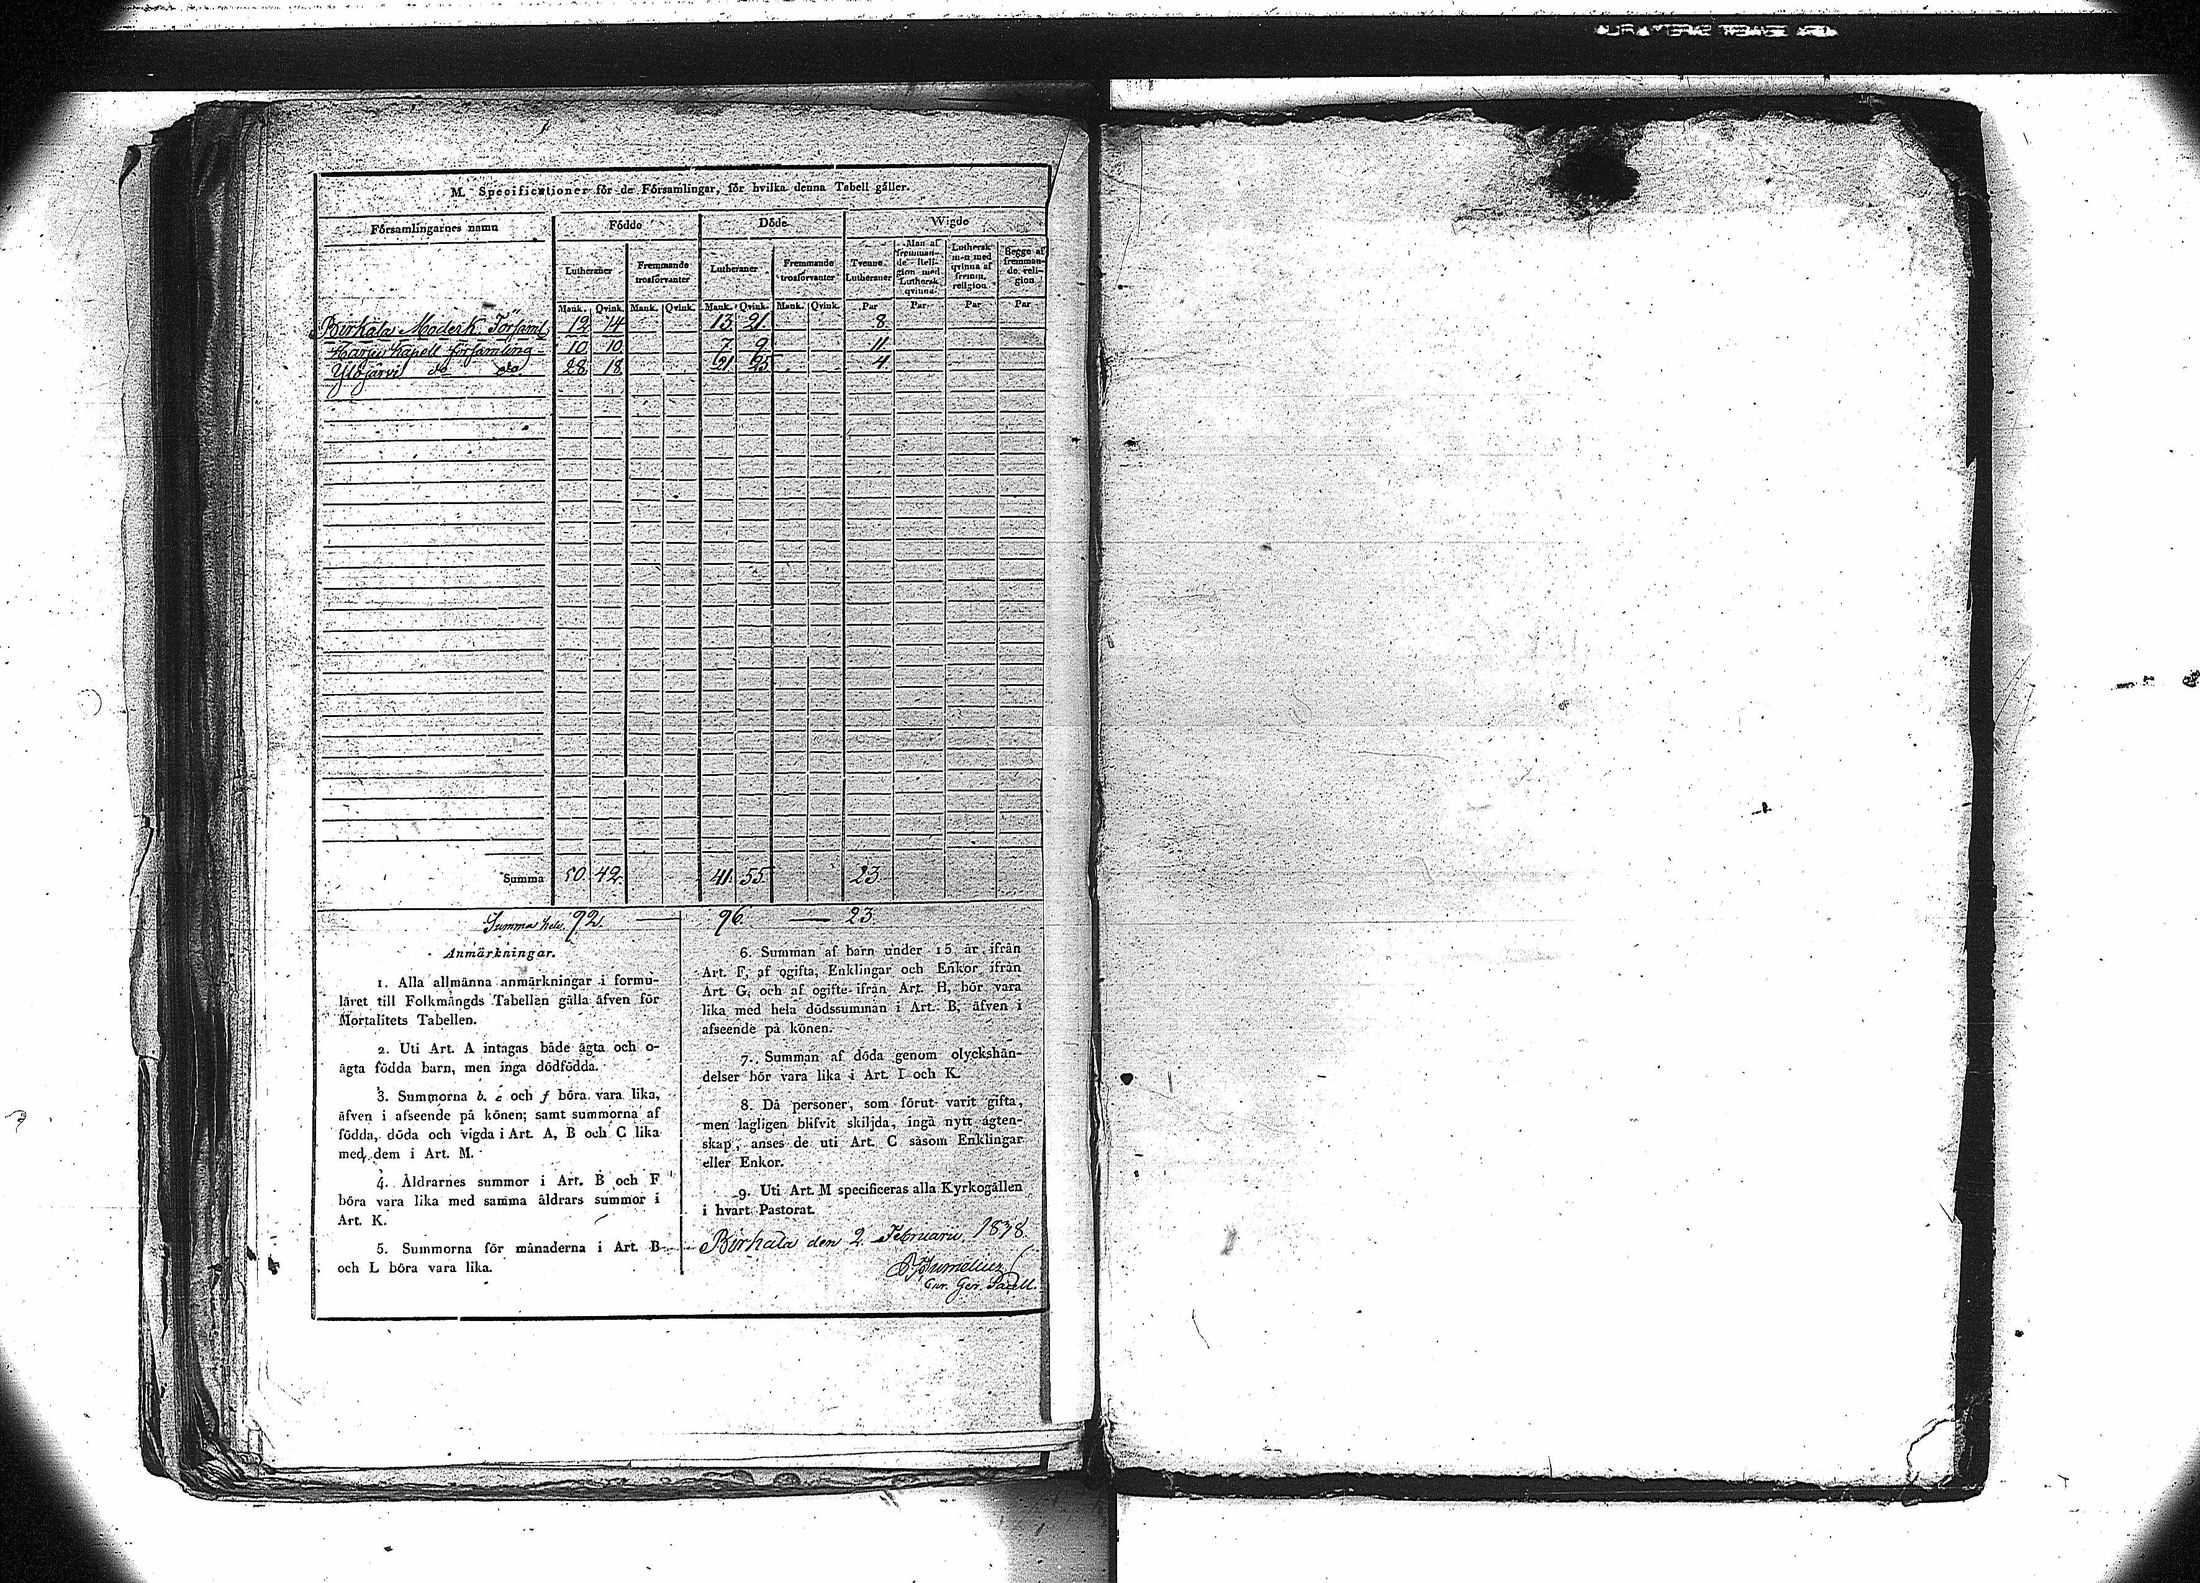 M. Specificationer för de Församlingar, för hvilka denna Tabell gäller.
Församlingarnes namn Födde Döde Wigde
Lutheraner Fremmande trosförvanter Lutheraner Fremmande trosförvanter Tvenne Lutheraner Man af fremmande Religion med Luthersk qvinna Luthersk man med qvinna af fremm. religion Begge af fremmande religion
Mank. Qvink. Mank. Qvink. Mank. Qvink. Mank. Qvink. Par Par Par Par
Birkala Moderk. Församl. 12 14 13 21 8
Harju Kapell församling 10 10 7 9 11
Ylöjärvi do do 28 18 21 25 4
Summa 50 42 41 55 23
Summa 92. — 96 — 23.
Anmärkningar.
1. Alla allmänna anmärkningar i formu-
läret till Folkmängds Tabellen gälla äfven för
Mortalitets Tabellen.
2. Uti Art. A intagas både ägta och o-
ägta födda barn, men inga dödfödda.
3. Summorna b. c och f böra vara lika,
äfven i afseende på könen; samt summorna af
födda, döda och vigda i Art. A, B och C lika
med dem i Art. M.
4. Åldrarnes summor i Art. B och F
böra vara lika med samma åldrars summor i
Art. K.
5. Summorna för månaderna i Art. B
och L böra vara lika.
6. Summan af barn under 15 år ifrån
Art. F, af ogifta, Enklingar och Enkor ifrån
Art. G, och af ogifte ifrån Art. H, bör vara
lika med hela dödssumman i Art. B, äfven i
afseende på könen.
7. Summan af döda genom olyckshän-
delser bör vara lika i Art. I och K.
8. Då personer, som förut varit gifta,
men lagligen blifvit skiljda, ingå nytt ägten-
skap, anses de uti Art. C såsom Enklingar
eller Enkor.
9. Uti Art. M specificeras alla Kyrkogällen
i hvart Pastorat.
Birkala den 2 Februarii 1838